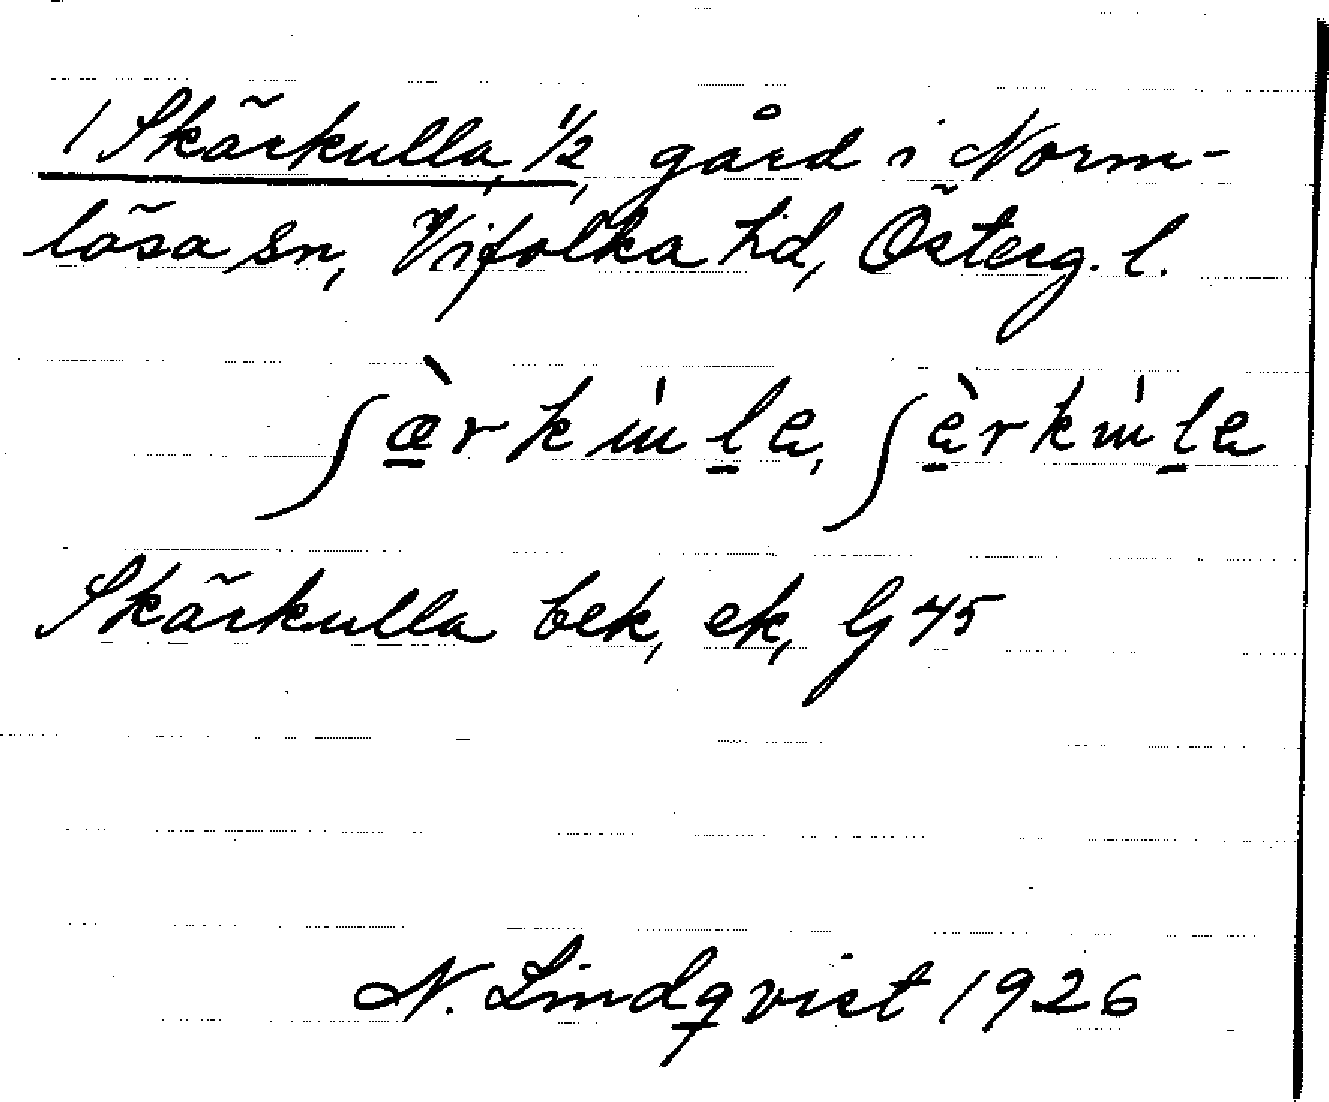 1 Skärkulla, 1/2, gård i Norm-
lösa sn, Vifolka hd, Österg. l.
ʃæ̀rku̇la, ʃèrku̇la
Skärkulla bek, ek, Gj 45
N. Lindqvist 1926